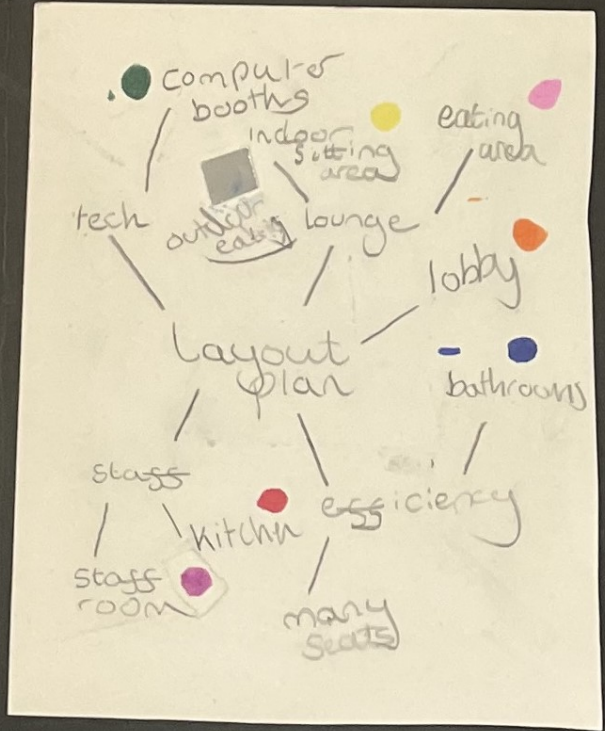 computer
booths
indoor
sitting
area
eating
area
tech
outdoor
eating
lounge
lobby
layout
plan
bathrooms
staff
kitchn
efficiency
staff
room
many
seats